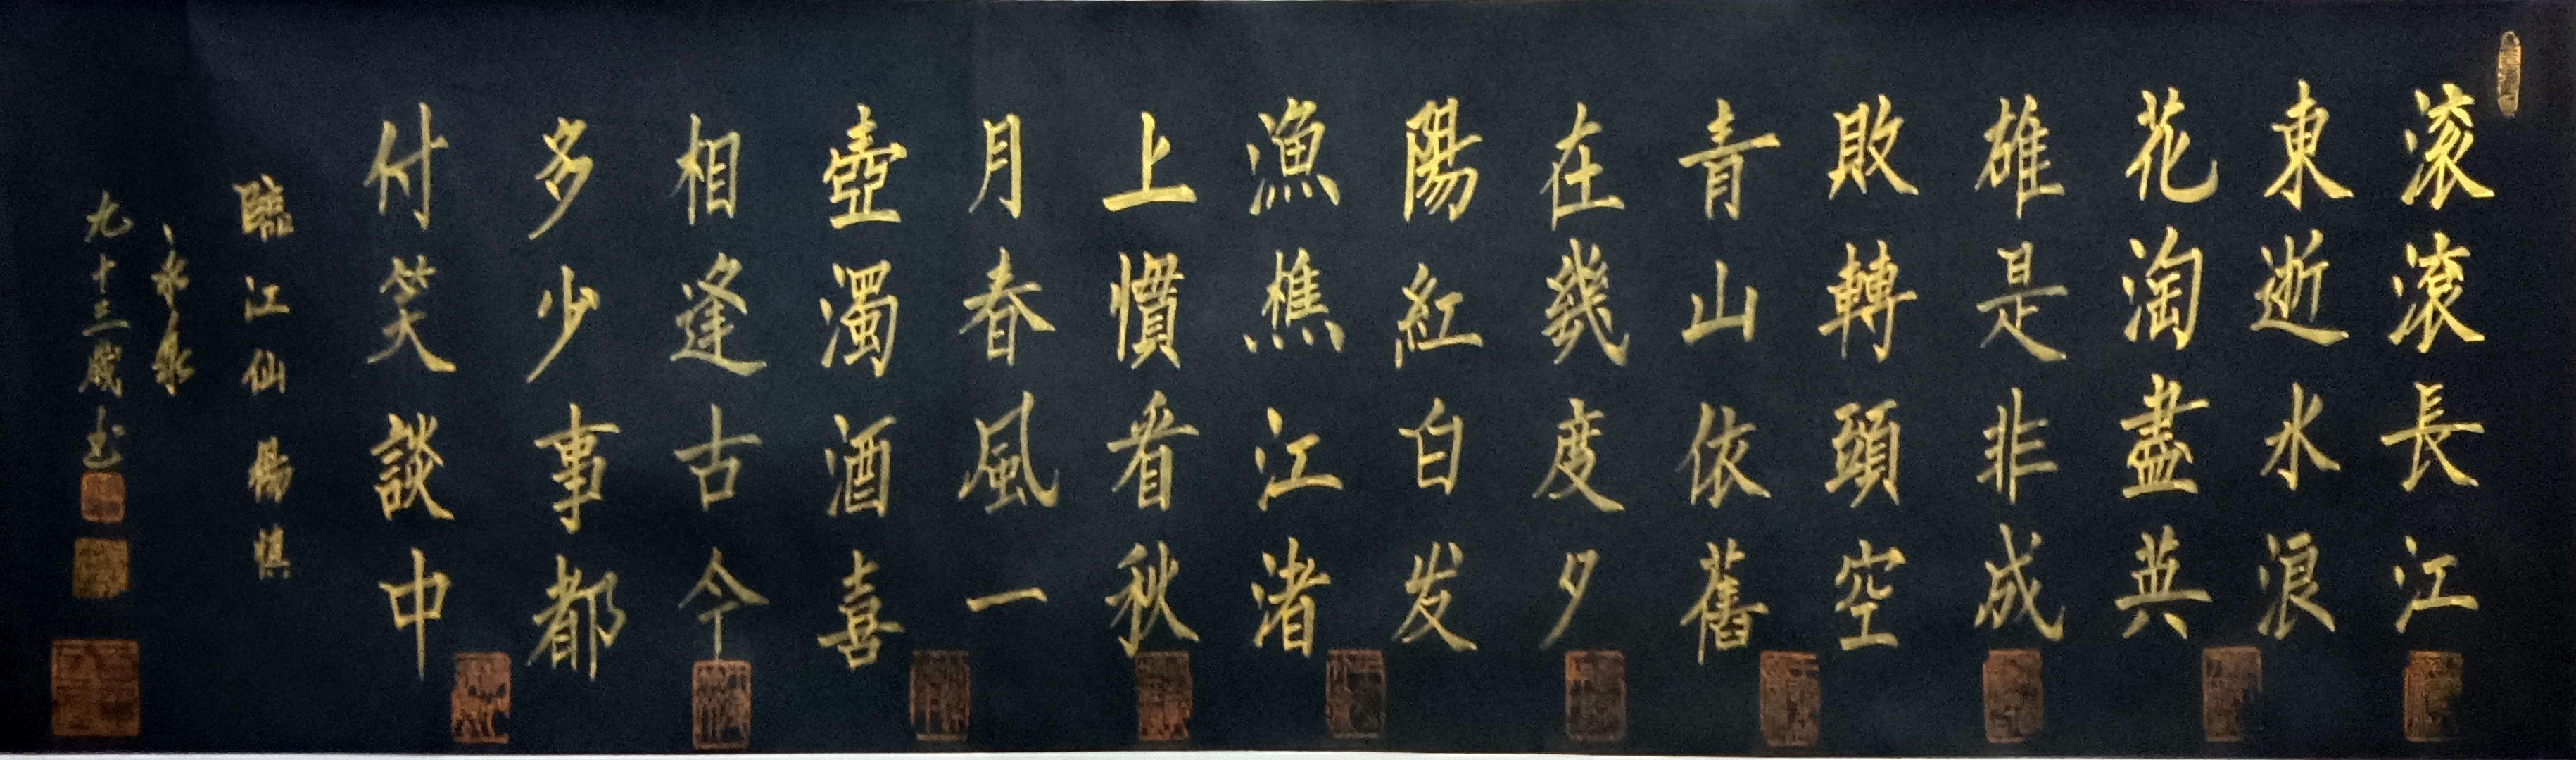 滚滚長江
東逝水浪
花淘盡英
雄是非成
敗轉頭空
青山依舊
在幾度夕
陽紅白发
漁樵江渚
上慣看秋
月春風一
壺濁酒喜
相逢古今
多少事都
付笑談中
臨江仙楊慎
九十三歲书